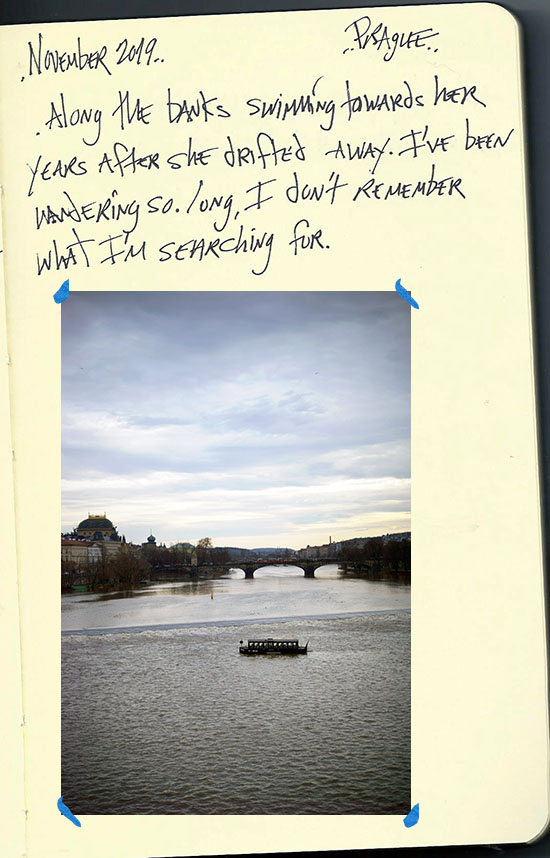 .November 2019..
..Prague..
.Along the banks swimming towards her
years after she drifted away. I've been
wandering so. long, I don't remember
what I'm searching for.